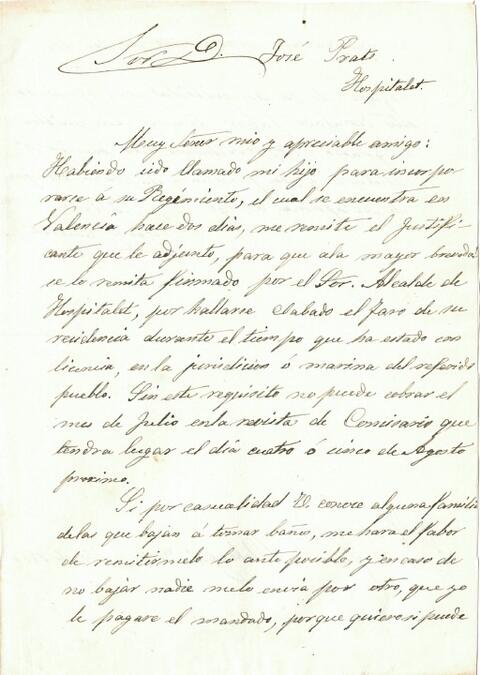 Sor. D. José Prats.
Hospitalet.
Muy Señor mio y apreciable amigo:
Habiendo sido llamado mi hijo para incorpo-
rarse á su Regimiento, el cual se encuentra en
Valencia hace dos dias, me remite el Justifi-
cante que le adjunto, para que ala mayor brevedad
se lo remita firmado por el Sor. Alcalde de
Hospitalet, por hallarse clabado el Faro de su
residencia durante el tiempo que ha estado con
licencia, en la jurisdicion ó marina del referido
pueblo. Sin este requisito no puede cobrar el
mes de Julio en la revista de Comisario que
tendra lugar el dia cuatro ó cinco de Agosto
proximo.
Si por casualidad V. conoce alguna familia
delas que bajan á tomar baños, me hara el fabor
de remitirmelo lo ante posible, y en caso de
no bajar nadie melo envia por otro, que yo
le pagare el mandado, porque quiero si puede